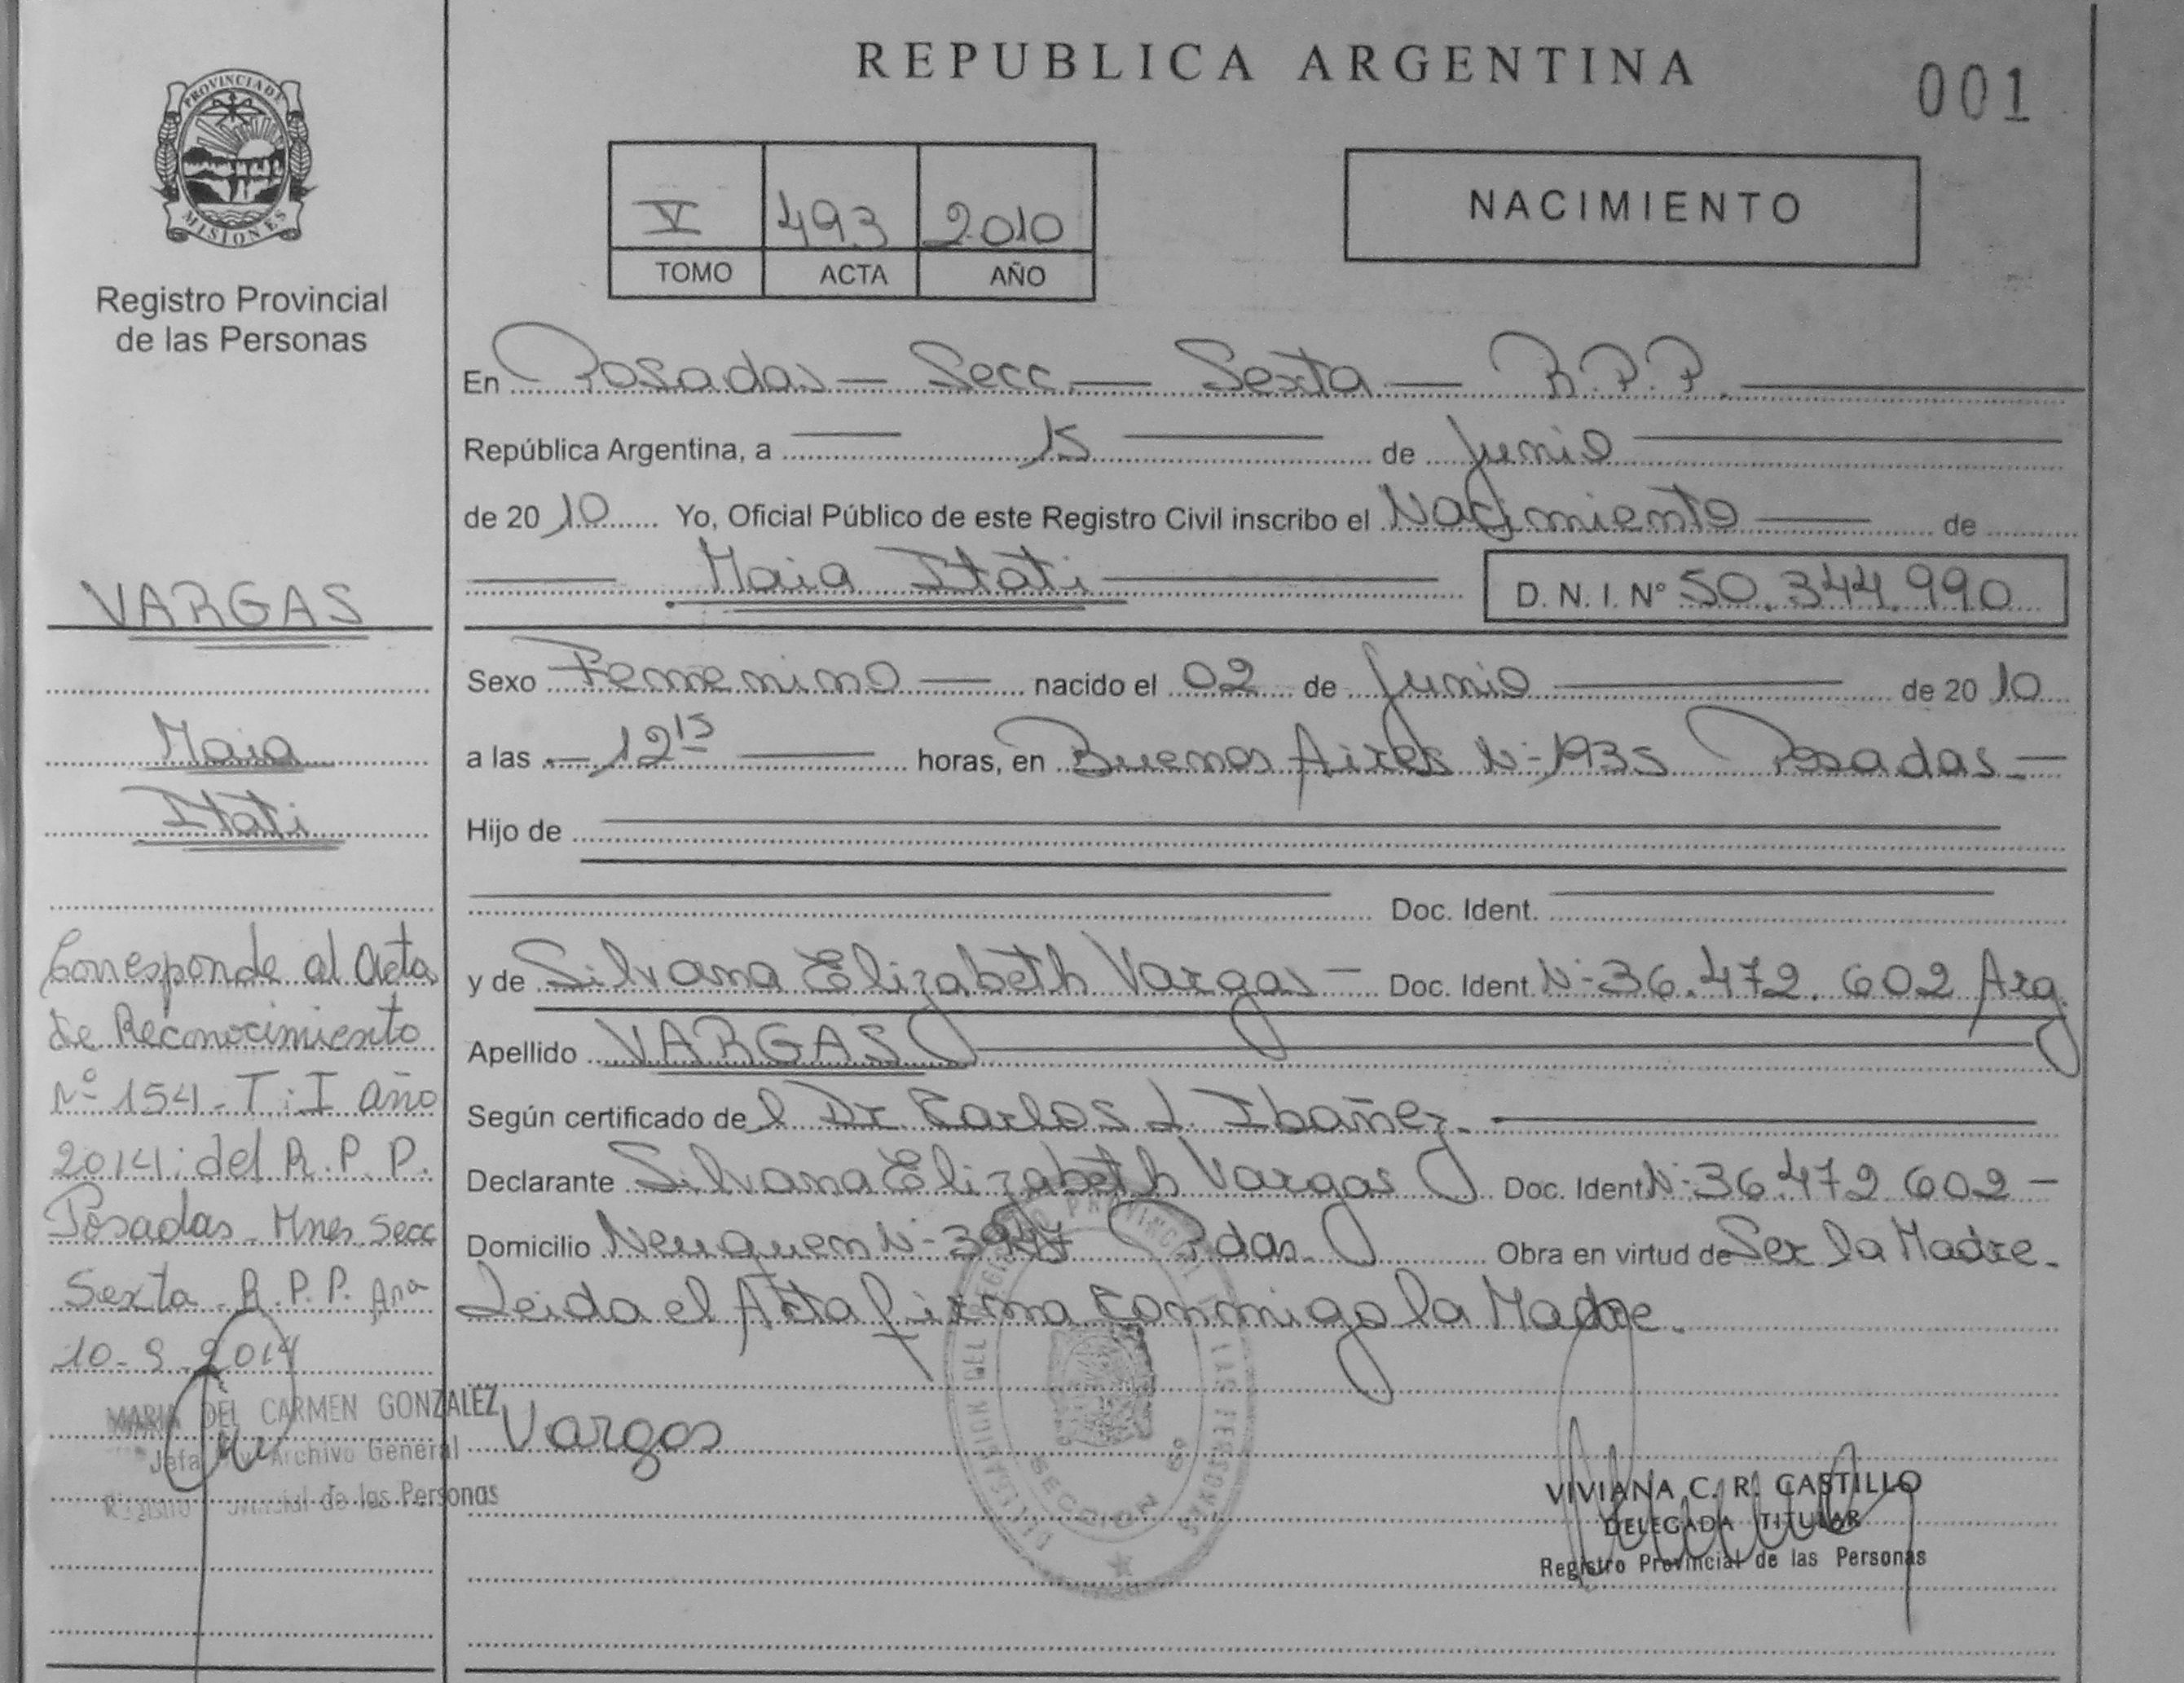 REPUBLICA ARGENTINA
001
PROVINCIA DE
MISIONES
Registro Provincial
de las Personas
V 493 2010
TOMO ACTA AÑO
NACIMIENTO
En Posadas - Secc. - Sexta - R.P.P.
República Argentina, a 15 de Junio
de 2010 Yo, Oficial Público de este Registro Civil inscribo el Nacimiento de
Maia Itati D. N. I. Nº 50.344.990
Sexo Femenino nacido el 02 de Junio de 2010
a las 12 15 horas, en Buenos Aires Nº 1935 Posadas
Hijo de
Doc. Ident.
y de Silvana Elizabeth Vargas - Doc. Ident. Nº 36.472.602 Arg.
Apellido VARGAS
Según certificado del Dr. Carlos L. Ibañez.
Declarante Silvana Elizabeth Vargas Doc. Ident. Nº 36.472.602
Domicilio Neuquen Nº Pdas. Obra en virtud de Ser la Madre.
Leida el Acta firma conmigo la Madre.
Vargas
VIVIANA C. R. CASTILLO
DELEGADA TITULAR
Registro Provincial de las Personas
SECCION 6º
VARGAS
Maia
Itati
Corresponde al Acta
de Reconocimiento
Nº 154 - T: I Año
2014 del R.P.P.
Posadas - Mnes Secc
Sexta - R.P.P.
10-9-2014
MARIA DEL CARMEN GONZALEZ
Jefa Archivo General
de las Personas